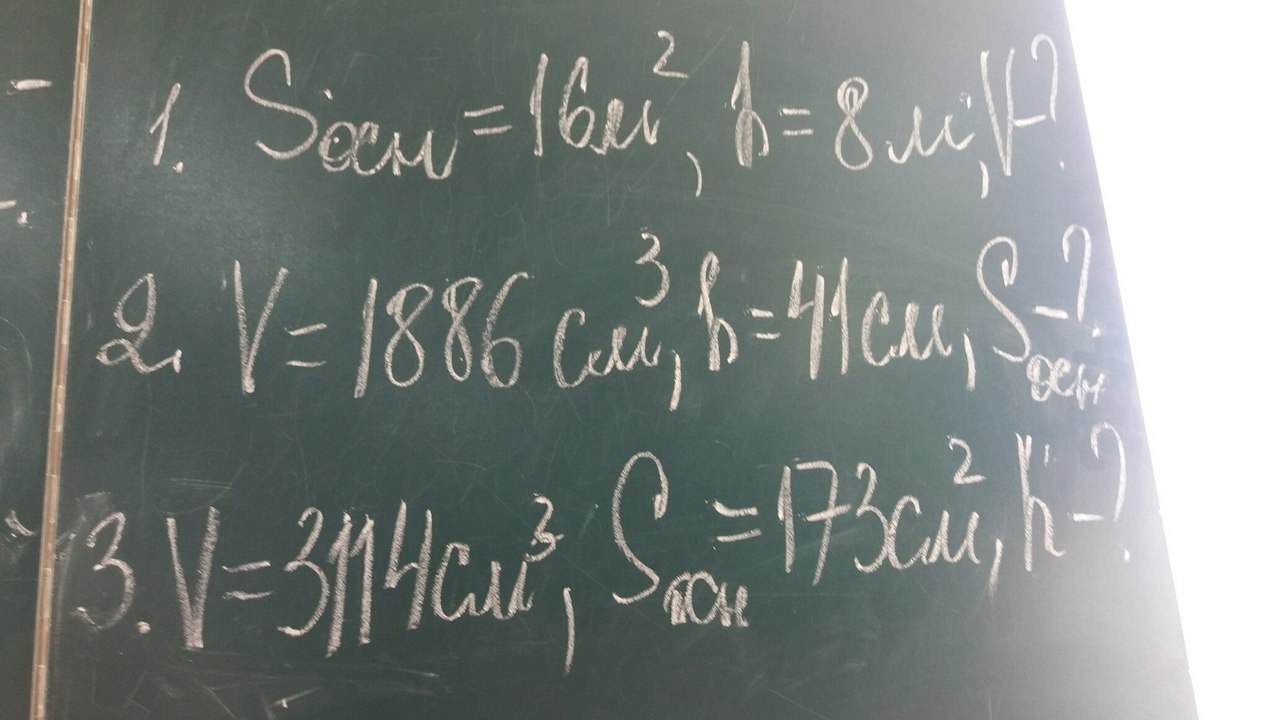 1. Sосн = 16 м², h = 8 м, V-?
2. V = 1886 см³, h = 41 см, Sосн -?
3. V = 3114 см³, Sосн = 173 см², h -?